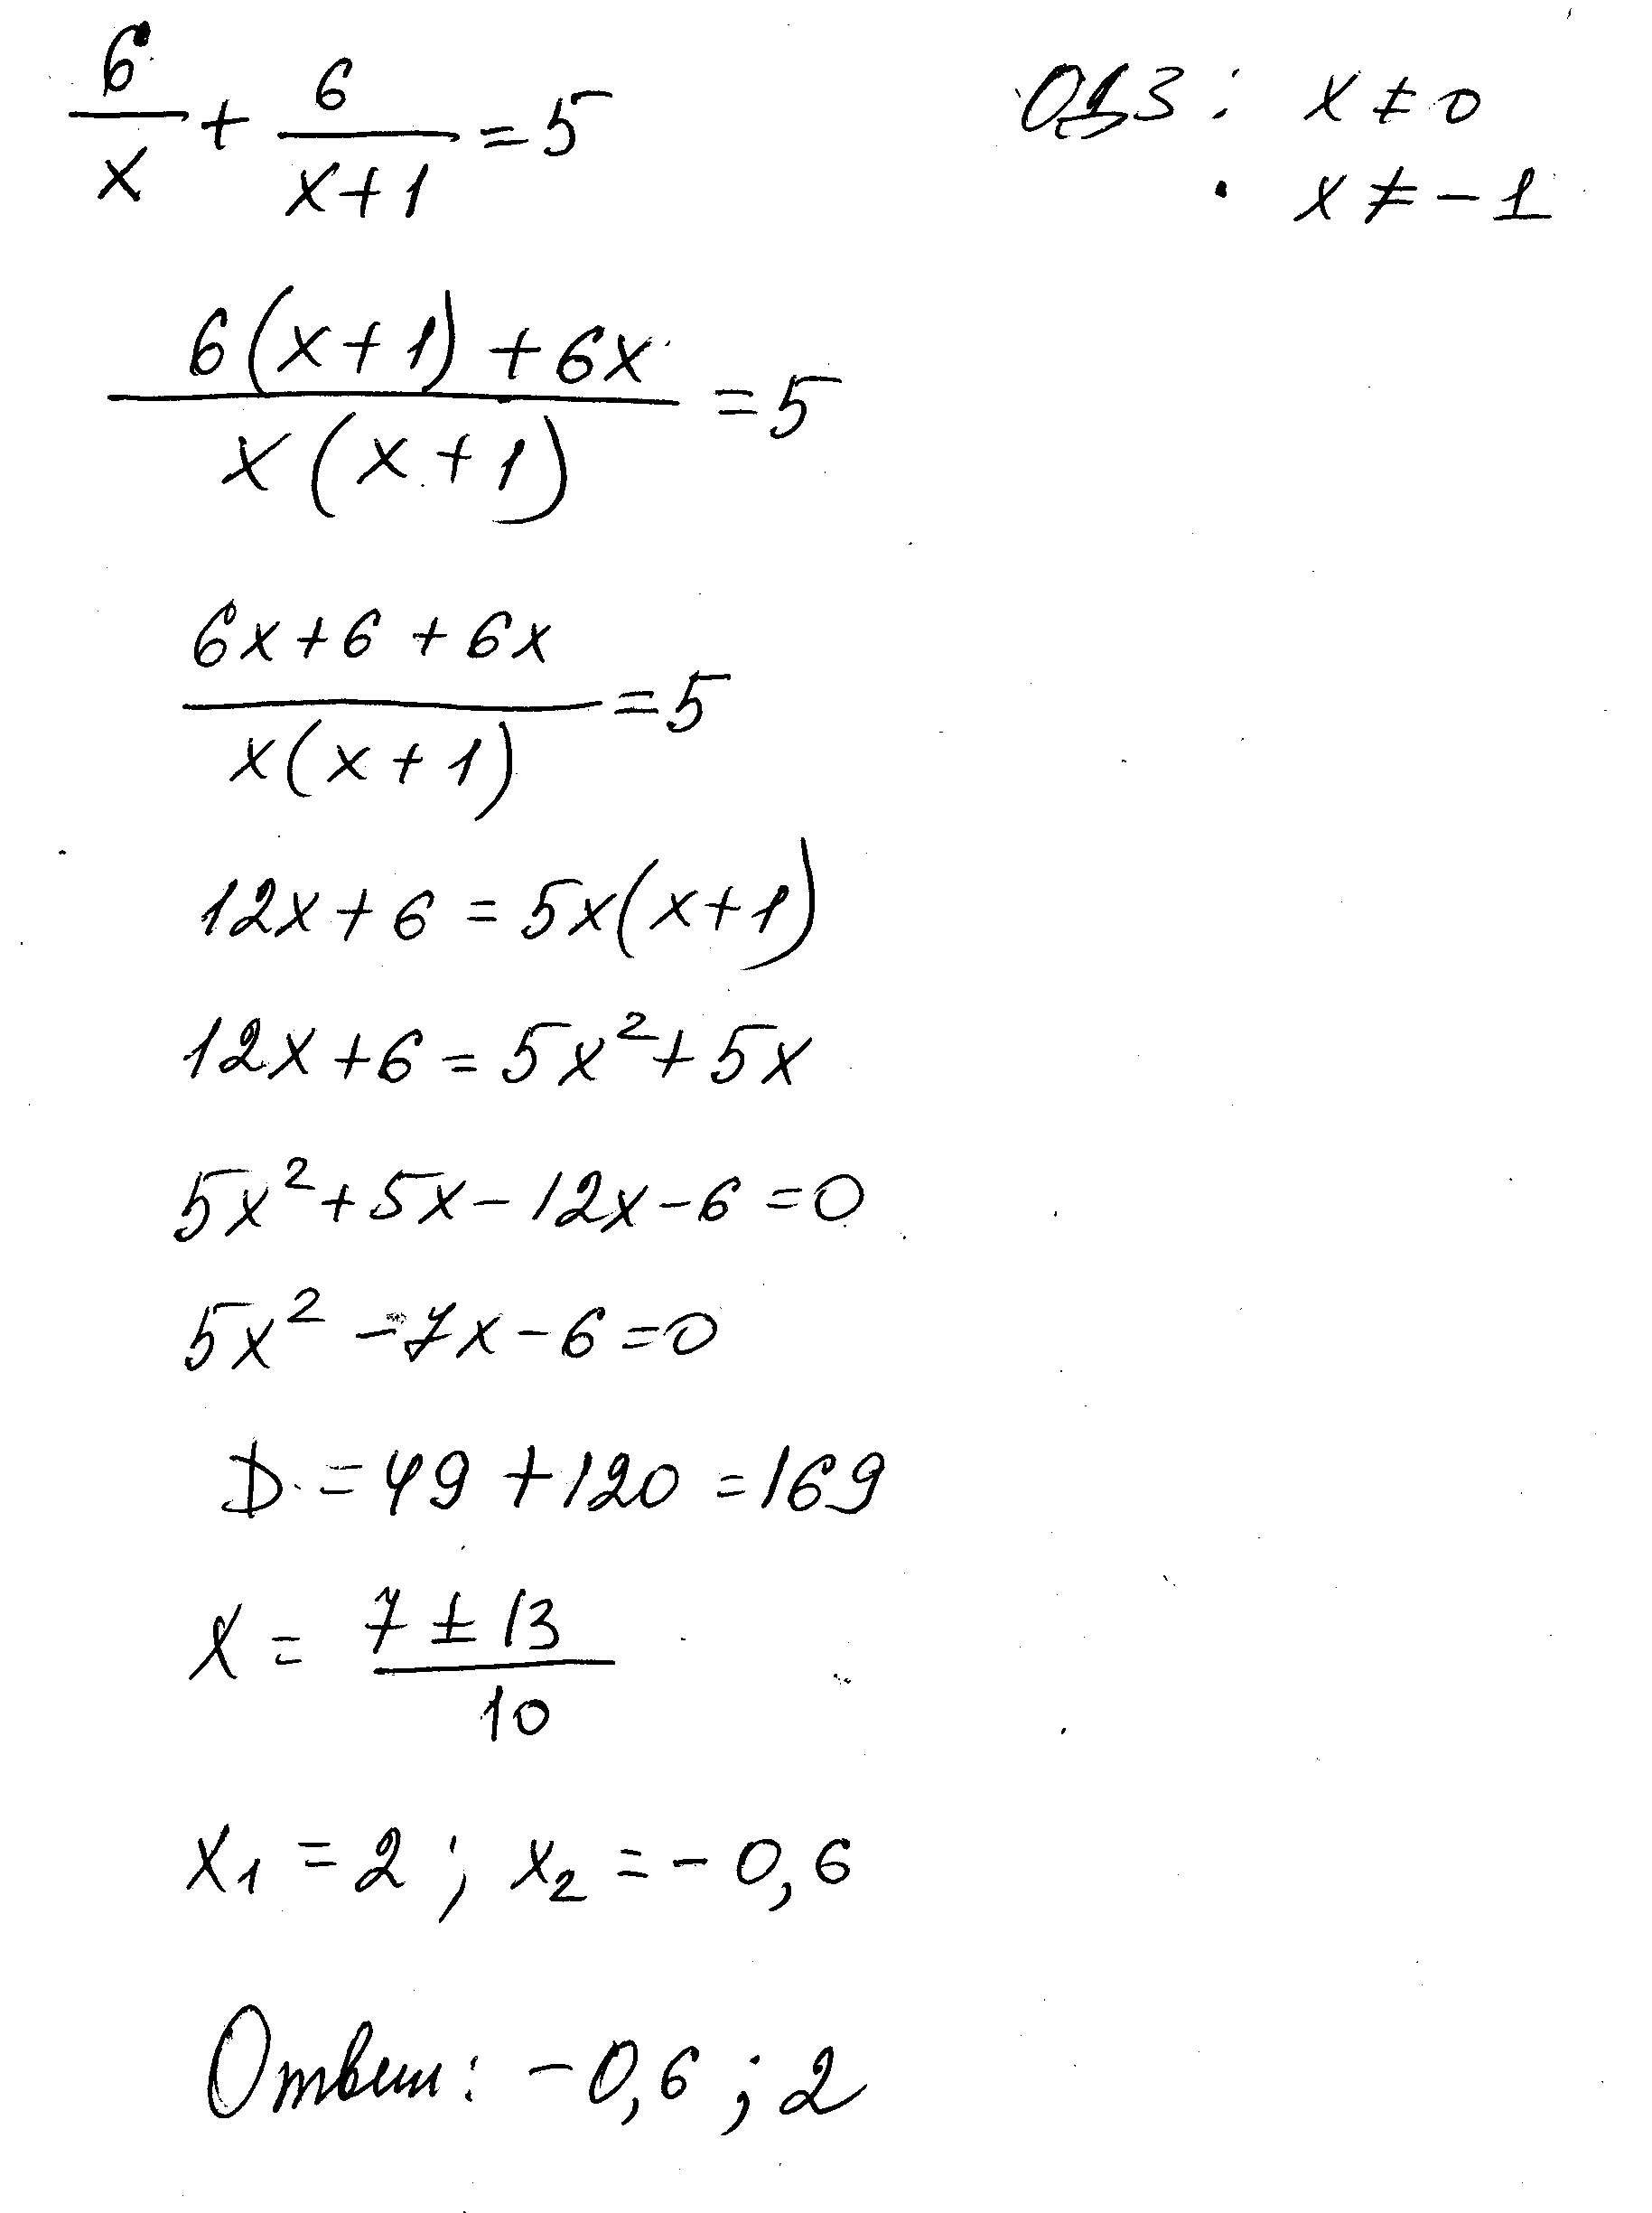 6/x + 6/(x+1) = 5 ОДЗ: x ≠ 0
x ≠ -1
(6(x+1) + 6x)/(x(x+1)) = 5
(6x+6+6x)/(x(x+1)) = 5
12x + 6 = 5x(x+1)
12x + 6 = 5x² + 5x
5x² + 5x - 12x - 6 = 0
5x² - 7x - 6 = 0
D = 49 + 120 = 169
x = (7 ± 13)/10
x₁ = 2 ; x₂ = - 0,6
Ответ: - 0,6 ; 2